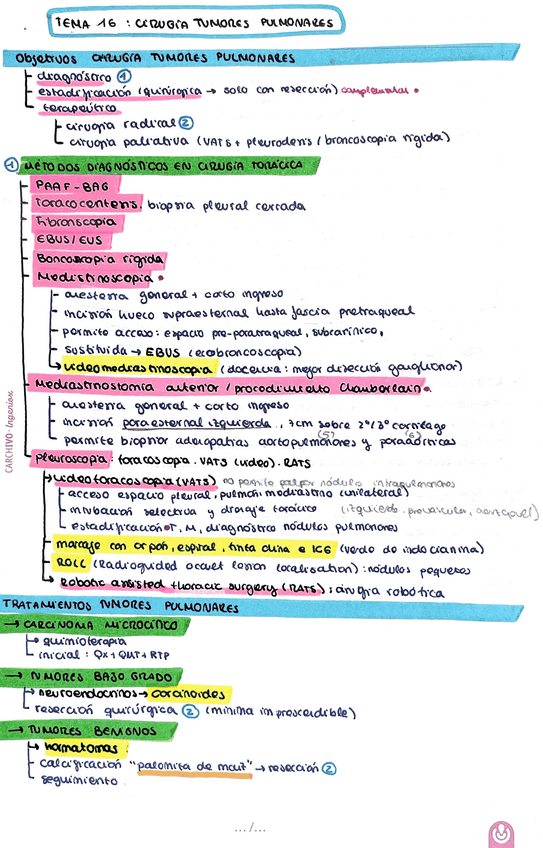 TEMA 16 : CIRUGÍA TUMORES PULMONARES
Objetivos CIRUGÍA TUMORES PULMONARES
diagnóstico ①
estadificación (quirúrgica → solo con resección) complementar •
terapéutico
cirugía radical ②
cirugía paliativa (VATS + pleurodesis / broncoscopia rígida)
① MÉTODOS DIAGNÓSTICOS EN CIRUGÍA TORÁCICA
PAAF - BAG
Toracocentesis, biopsia pleural cerrada
Fibronscopia
EBUS / EUS
Boncoscopia rígida
Mediastinoscopia •
anestesia general + corto ingreso
incisión hueco supraesternal hasta fascia pretraqueal
permite acceso: espacio pre-paratraqueal, subcarínico,
sustituida → EBUS (ecobroncoscopia)
videomediastinoscopia (docencia: mejor disección ganglionar)
Mediastinostomía anterior / procedimiento Chamberlain •
anestesia general + corto ingreso
incisión paraesternal izquierda, 7cm sobre 2º/3º cartílago
permite biopsiar adenopatías aortopulmonares y paraaórticas
(5) (6)
Pleuroscopia: toracoscopia. VATS (video). RATS
videotoracoscopia (VATS) no permite palpar nódulo intrapulmonares
acceso espacio pleural, pulmón, mediastino (unilateral)
intubación selectiva y drenaje torácico (izquierdo. prevascular, aortopul)
estadificación T, M, diagnóstico nódulos pulmonares
marcaje con arpón, espiral, tinta china e ICG (verde de indocianina)
ROLL (Radioguided occult lesion localisation): nódulos pequeños
Robotic assisted thoracic surgery (RATS): cirugía robótica
TRATAMIENTOS TUMORES PULMONARES
→ CARCINOMA MICROCÍTICO
quimioterapia
inicial: QX + QMT + RTP
→ TUMORES BAJO GRADO
neuroendocrinos → carcinoides
resección quirúrgica ② (mínima imprescindible)
→ TUMORES BENIGNOS
hamartomas
calcificación "palomita de maíz" → resección ②
seguimiento
CARCHIVO - Ingenioso
.../...